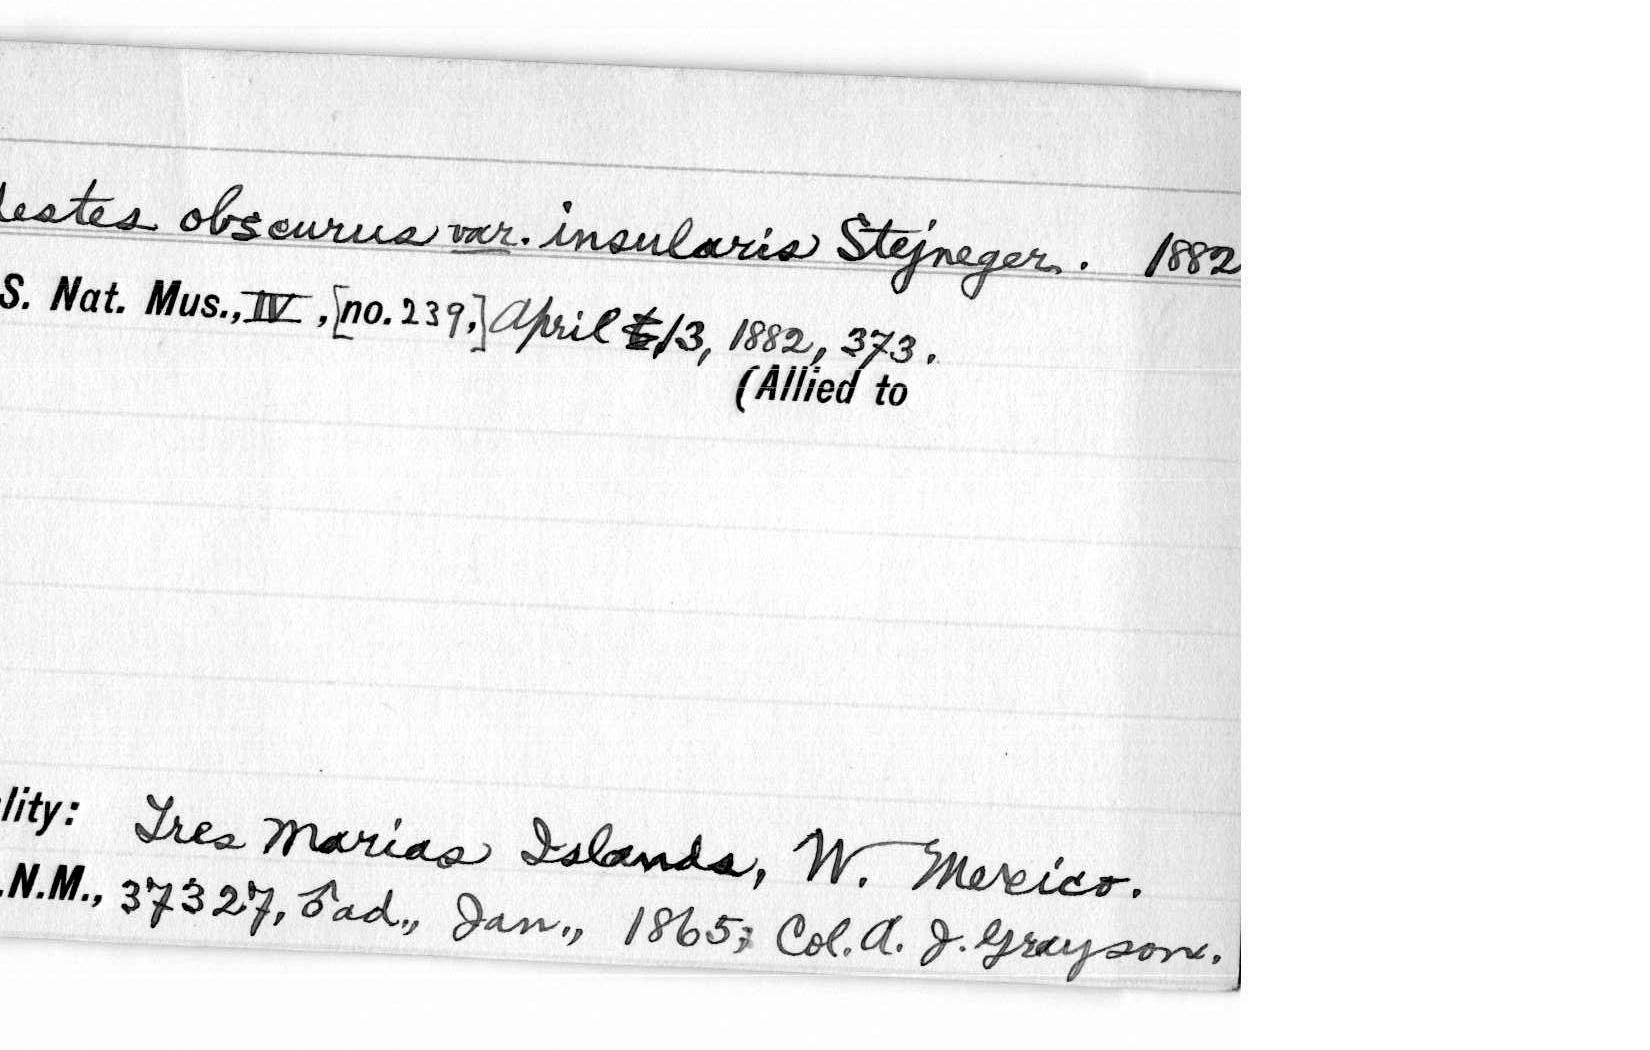 lestes obscurus var. insularis Stejneger. 1882
S. Nat. Mus., IV, [no. 239,] April 13, 1882, 373.
(Allied to
lity: Tres Marias Islands, W. Mexico.
.N.M., 37327, ♂ ad., Jan., 1865; Col. A. J. Grayson.